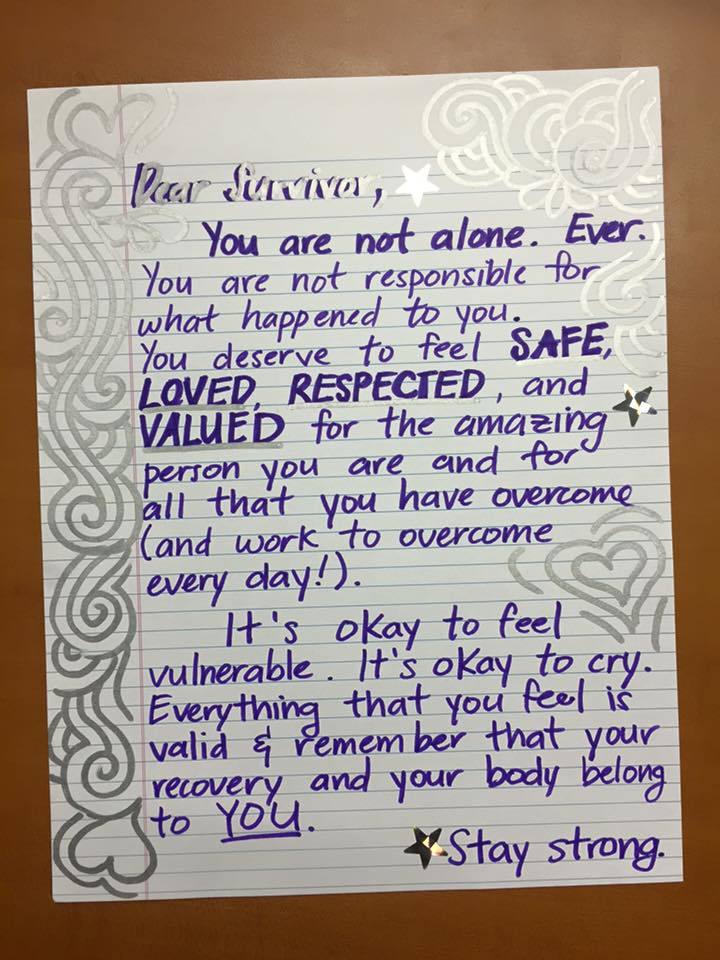 Dear Survivor,
You are not alone. Ever.
You are not responsible for
what happened to you.
You deserve to feel SAFE,
LOVED, RESPECTED, and
VALUED for the amazing
person you are and for
all that you have overcome
(and work to overcome
every day!).
It's okay to feel
vulnerable. It's okay to cry.
Everything that you feel is
valid & remember that your
recovery and your body belong
to YOU.
Stay strong.